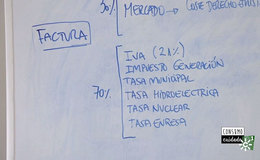 30%
MERCADO → COSTE DERECHO EMISI
FACTURA
IVA (21%)
IMPUESTO GENERACIÓN
TASA MUNICIPAL
70%
TASA HIDROELECTRICA
TASA NUCLEAR
TASA ENRESA
CONSUMO
cuidado